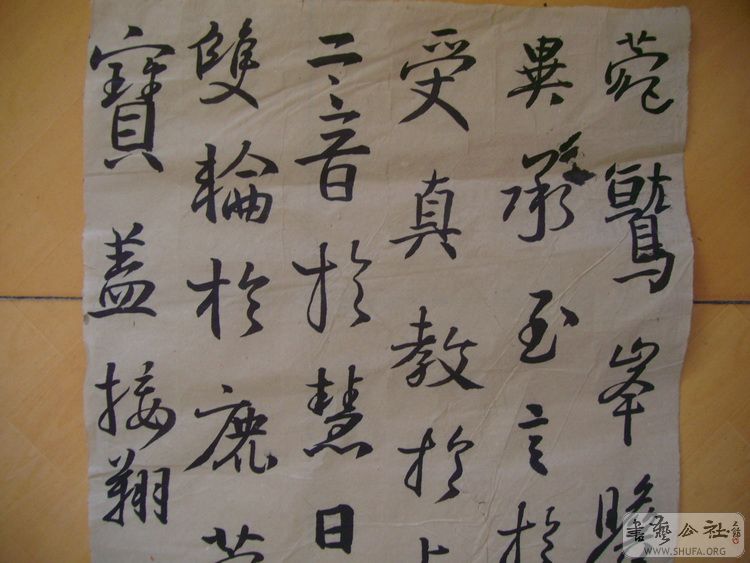 菀鷲峯瞻
異承至言於
受真教於上
二音於慧日
雙輪於鹿菀
寶盖接翔
書藝公社
WWW.SHUFA.ORG